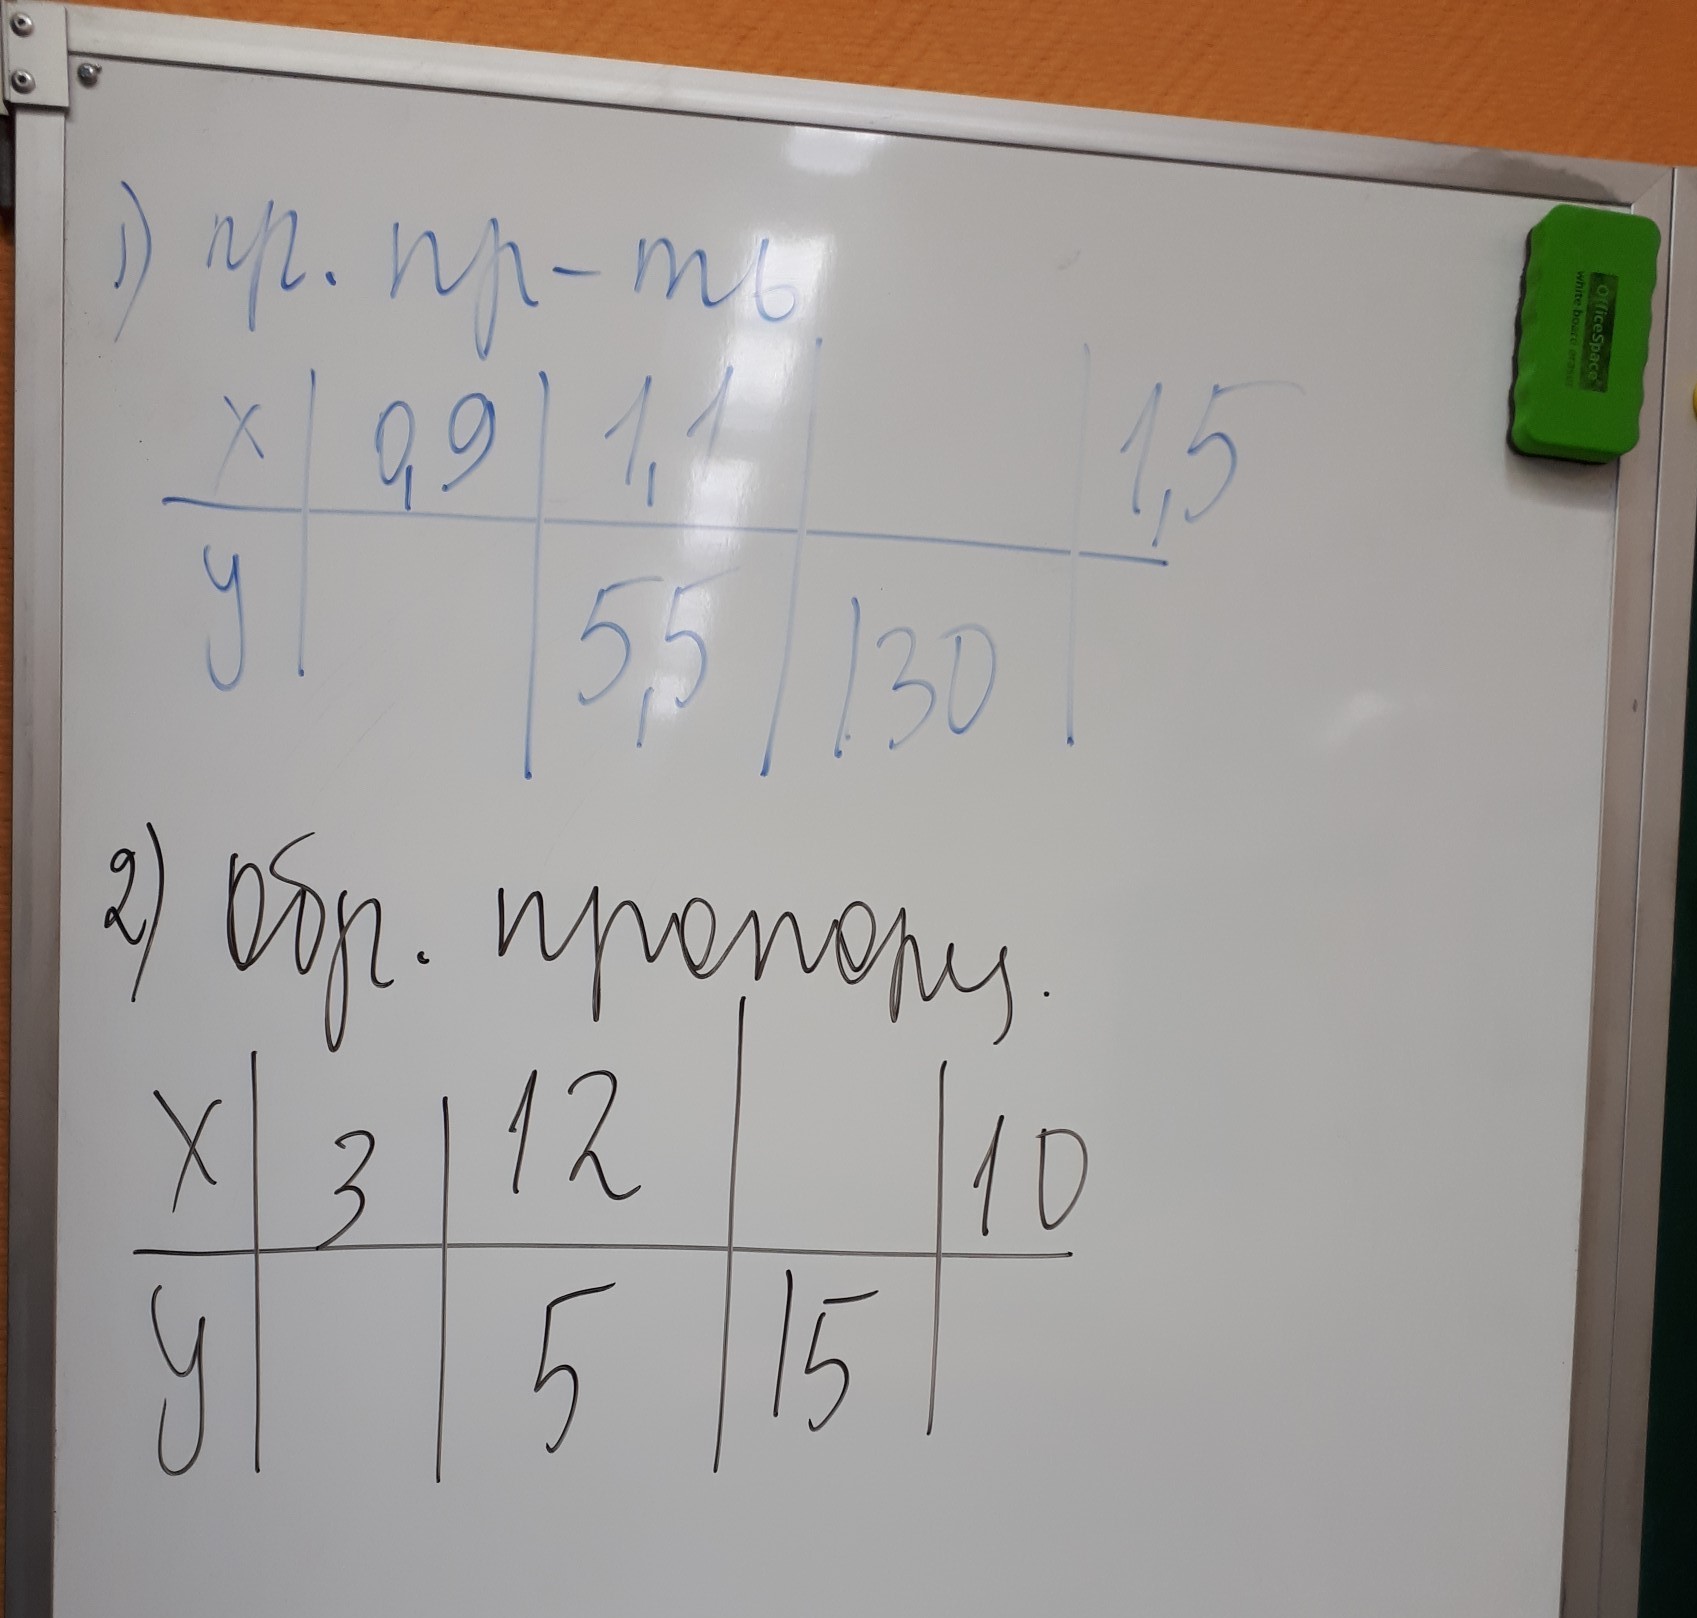 1) пр. пр-ть
x 0,9 1,1 1,5
y 5,5 130
2) Обр. пропорц.
x 3 12 10
y 5 15
OfficeSpace